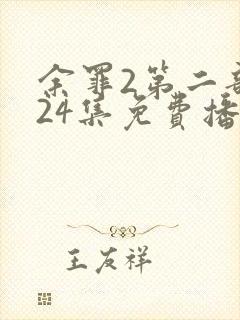 余罪2第二部
24集免费播
王友祥